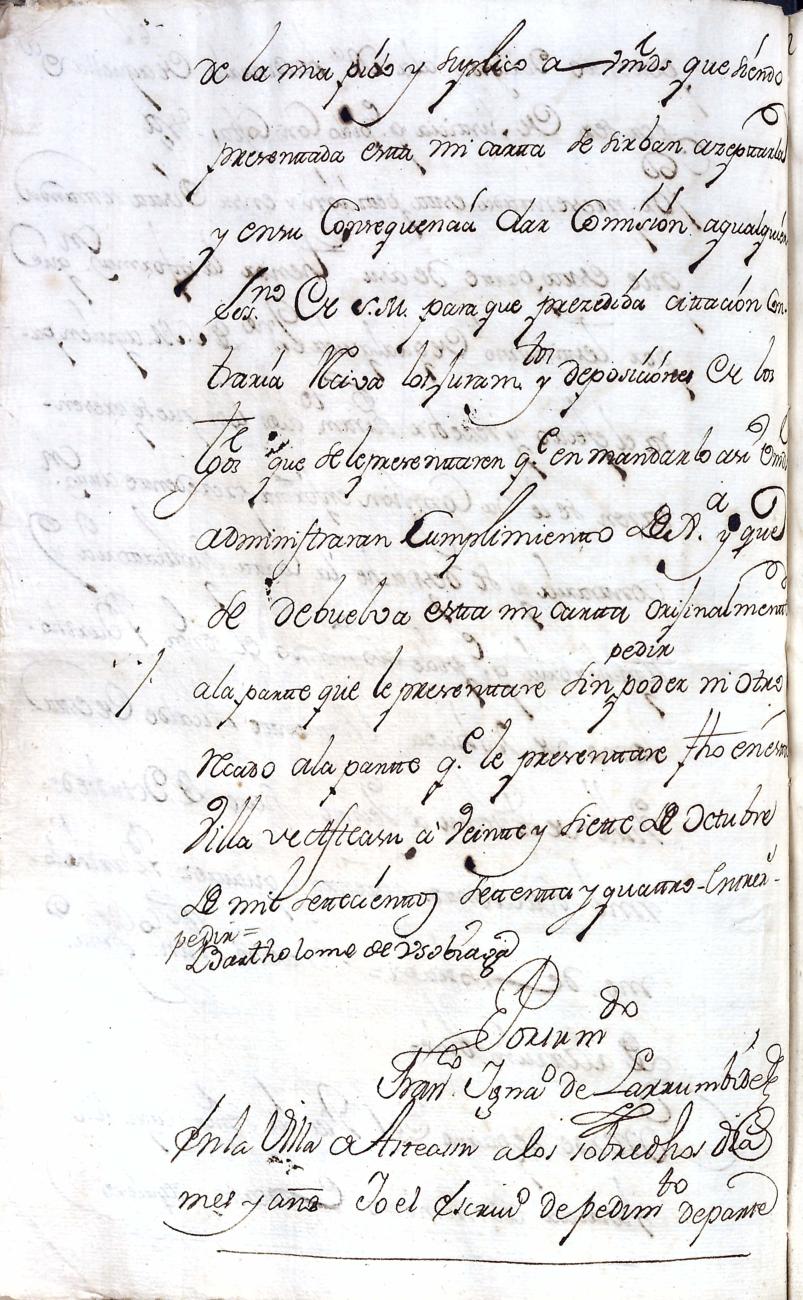 de la mia pido y suplico a vmds que siendo
presenttada estta mi cartta se sirban azepttarla
y ensu Consequencia dar Comision aqualquier
Scrno de S.M. para que prezedida cittación Con-
traria Reciva los Juramtos y deposiciónes de los
tgos que se lepresenttaren qe en mandarlo asi vmds
administraran Cumplimientto de Na. y que
se debuelva estta mi cartta Orijinalmentte
pedir
ala partte que le presenttare sin poder ni otro
Rcado ala partte qe le presenttare fho en estta
Villa de Asteasu a Veintte y siette de Octubre
de mil settecienttos settentta y quattro - Entrers -
pedir =
Bartholome de Vsobiaga
Porsumdo
Franco Ignao de Larrumbide
En la Villa de Asteasu alos sobredhos dia
mes y año Yo el Escrivo de pedimto departte